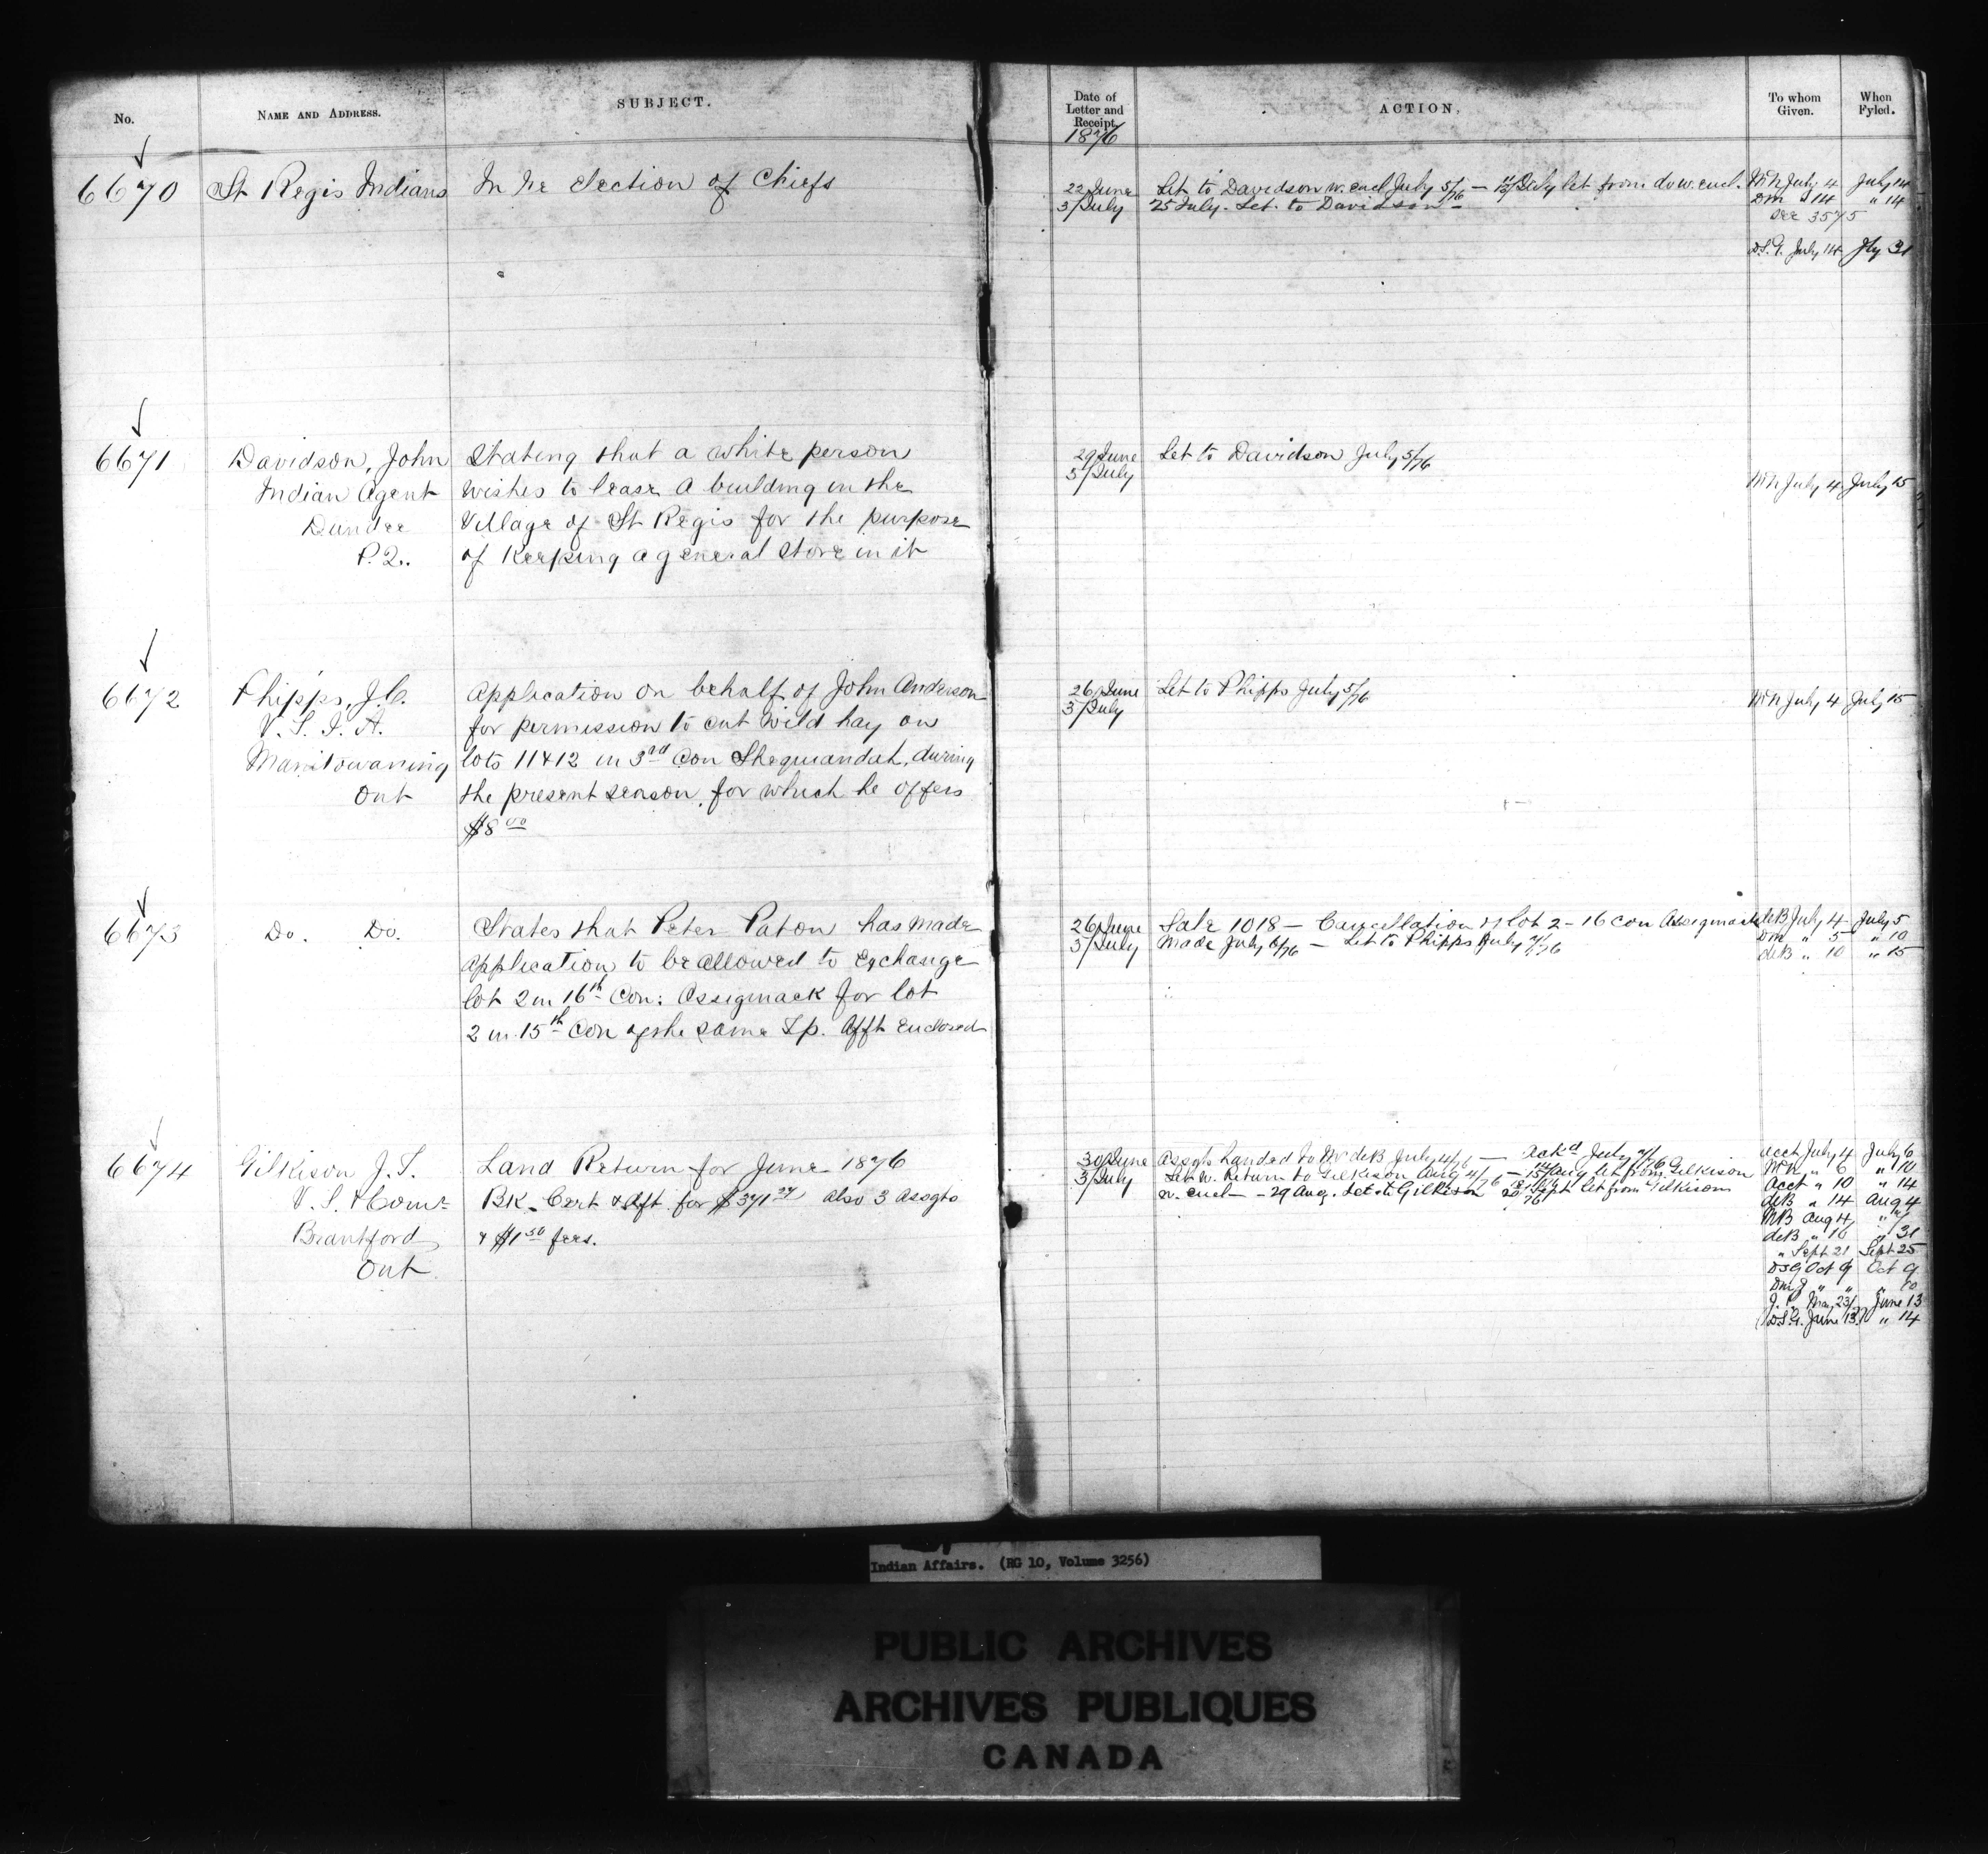 No.
NAME AND ADDRESS.
SUBJECT.
Date of
Letter and
Receipt.
ACTION.
To whom
Given.
When
Fyled.
1876
6670
St Regis Indians
In re election of Chiefs
22 June
3/July
Let to Davidson w. encl July 5/76 — 12/July let from do w. encl.
25 July. Let. to Davidson
July 4 July 14
Dm " 14 " 14
See 3575
D.S.G. July 14 Jly 31
6671
Davidson, John
Indian Agent
Dundee
P.Q.
Stating that a white person
wishes to lease a building in the
Village of St Regis for the purpose
of Keeping a general store in it
29 June
3/July
Let to Davidson July 5/76
July 4 July 15
6672
Phipps, J.C.
V. S. I. A.
Manitowaning
Ont
Application on behalf of John Anderson
for permission to cut wild hay on
lots 11 & 12 in 3rd Con Sheguiandah, during
the present season, for which he offers
$8 00
26 June
3/July
Let to Phipps July 5/76
July 4 July 15
6673
Do. Do.
States that Peter Paton has made
application to be allowed to exchange
lot 2 in 16th Con: Assiginack for lot
2 in 15th Con of the same Tp. Afft enclosed
26 June
3/July
Sale 1018 — Cancellation of lot 2 - 16 Con Assiginack
Made July 6/76 — Let to Phipps July 7/76
deB July 4 July 5
Dm " 5 " 10
deB " 10 " 15
6674
Gilkison J. T.
V. S. & Comr
Brantford
Ont
Land Return for June 1876
BK. Cert & Aft. for $371 also 3 Assgts
& $1 50 fees.
30 June
3/July
Assgts handed to Mr deB July 4/76 — Ackd July 7/76
Let w. Return to Gilkison Aug 4/76 — 15/Aug let from Gilkison
w. encl — 29 Aug. Let to Gilkison 20 Sept let from Gilkison
Acct July 4 July 6
" 6 " 10
Acct " 10 " 14
deB " 14 Aug 4
Aug 4 "
deB " 10 " 31
" Sept 21 Sept 25
DSG Oct 9 Oct 9
" " " 10
May 23/77 June 13
D.S.G. June 13 " 14
Indian Affairs. (RG 10, Volume 3256)
PUBLIC ARCHIVES
ARCHIVES PUBLIQUES
CANADA